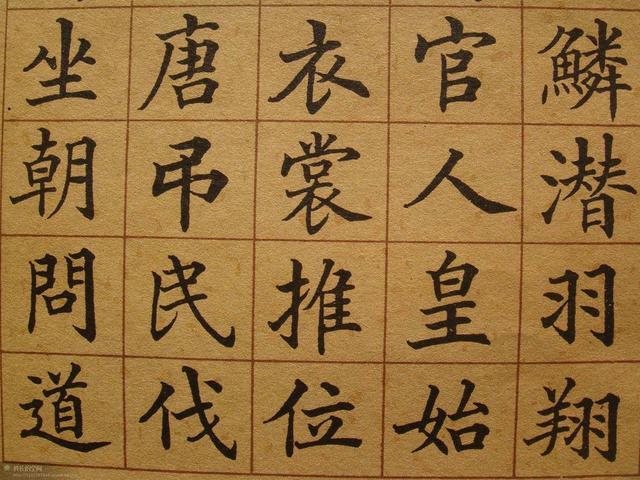 鱗潛羽翔
官人皇始
衣裳推位
唐弔民伐
坐朝問道